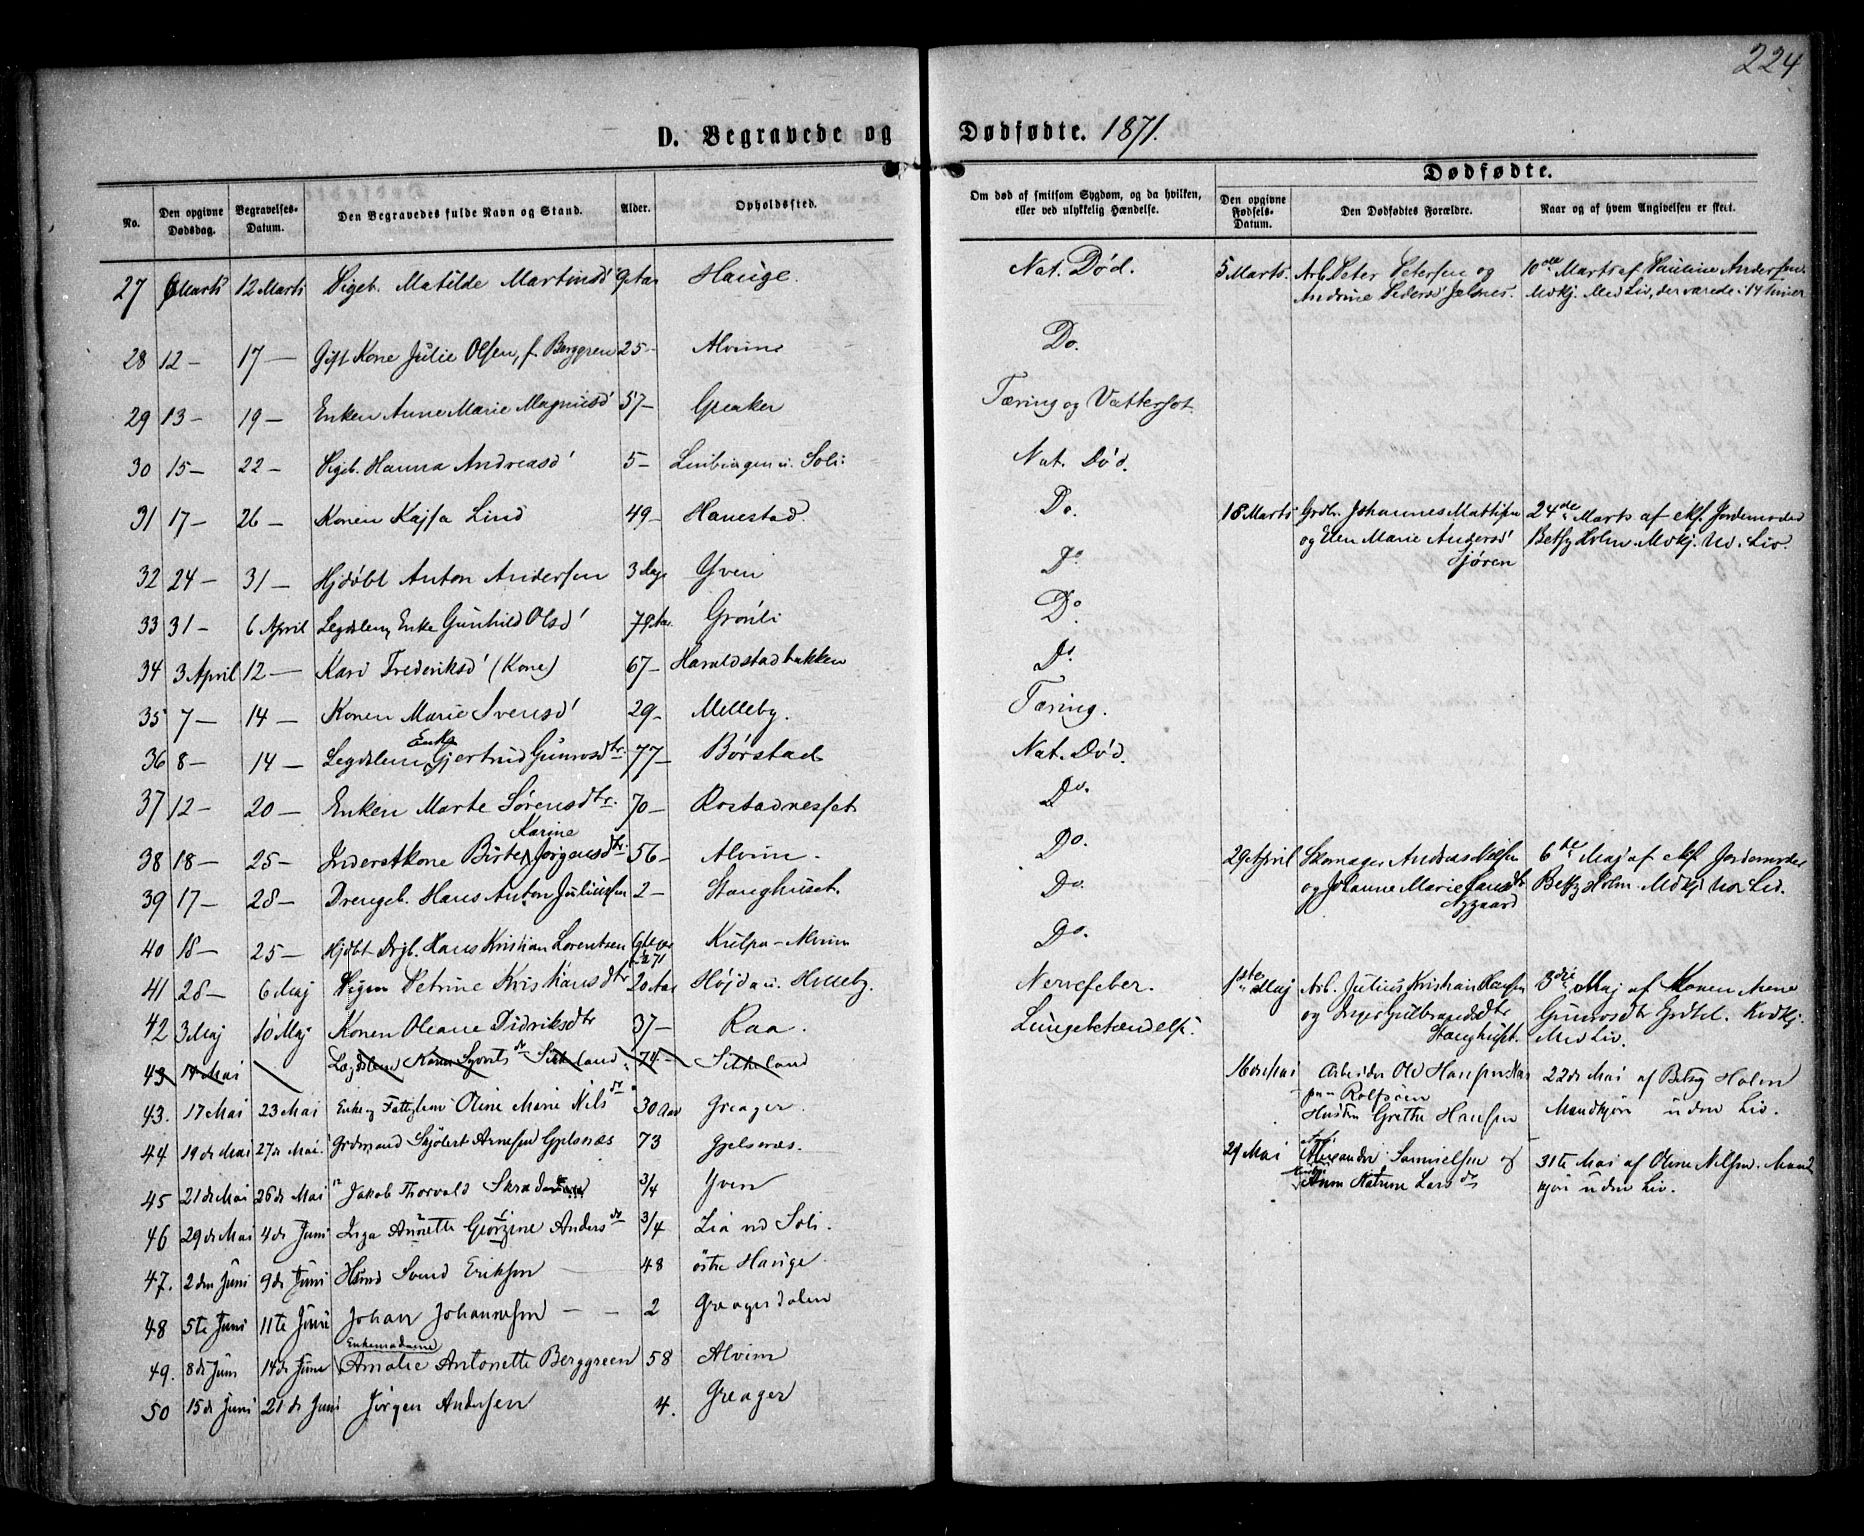 224
D. Begravede og Dødfødte. 1871.
Dødfødte.
No. Den opgivne Dødsdag. Begravelses-Datum. Den Begravedes fulde Navn og Stand. Alder. Opholdssted. Om død af smitsom Sygdom, og da hvilken, eller ved ulykkelig Hændelse. Den opgivne Fødsels-Datum. Den Dødfødtes Forældre. Naar og af hvem Angivelsen er skeet.
27 6 Marts 12 Marts Pigeb. Matilde Martinsd' 9 Aar Hauge. Nat. Død. 5 Marts. Arb. Peter Petersen og 10de Marts af Pauline Andersen.
Andrine Pedersd' Jelsnes. Mdkj. Med Liv, der varede i 14 Timer
28 12 — 17 — Gift Kone Julie Olsen, f. Berggren 25 — Alvim Do.
29 13 — 19 — Enken Anne Marie Magnusd' 57 — Greaker Tæring og Vattersot.
30 15 — 22 — Pigeb. Hanna Andreasd' 5 — u. Soli Nat. Død.
31 17 — 26 — Konen Kajsa Lind 49 — Hanestad. Do. 18 Marts Grdbr. Johannes Mattisen 24de Marts af exf. Jordemoder
og Elen Marie Andersd' Betsy Holm. Mdkj. Ud. Liv.
32 24 — 31 — Hjdøbt Anton Andersen 3 Dage Yven Do
33 31 — 6 April Legdslem, Enke Gunhild Olsd' 79 Aar. Grønli Do.
34 3 April 12 — Kari Frederiksd' (Kone) 67 — Haraldstadbakken Do.
35 7 — 14 — Konen Marie Svensd' 29 — Melleby. Tæring.
36 8 — 14 — Legdslem Enke Gjertrud Gunrosdtr. 77 — Børstad Nat. Død.
37 12 — 20 — Enken Marte Sørensdtr. 70 — Rostadnesset Do.
38 18 — 25 — Inderstkone Birte Karine Jørgensdtr 56 — Alvim. Do. 29 April Skomager Andreas Nilsen 6te Maj af exf. Jordemoder
og Johanne Marie Larsdtr Betsy Holm. Mdkj. Ud. Liv.
Nygaard
39 17 — 28 — Drengeb. Hans Anton Juliussen 2 — Stanghuset. Do.
40 18 — 25 — Hjdbt Drgb. Hans Kristian Lorentsen Kulpa - Alvim Do.
41 28 — 6 Maj Pigen Petrine Kristiansdtr 20 Aar Højda u. Helleby. Nervefeber. 1ste Maj Arb. Julius Kristian Hansen 3die Maj af Konen Anne
og Inger Gulbrandsdtr Gunrosdtr Grdtel. Kvdkj.
Stanghuset. Med Liv.
42 3 Maj 10 Maj Konen Oleane Didriksdtr 37 — Raa. Lungebetændelse.
43 14 Mai Lægdslem Karen Syverts dtr 74 —
43. 17 Mai 23 Mai Enke og Fattiglem Oline Marie Nils dtr 30 Aar Greager. 16 de Mai Arbeider Ole Hansen 22 de Mai af Betsy Holm
paa Rolfsøen Mandkjøn uden Liv.
Hustru Grethe Hansen
44 19 de Mai 27 de Mai. Grdmand Skjølert Arnesen Gjelsenæs 73 Gjelsenæs. 29 Mai Alexander Samuelsen og 31te Mai af Oline Nilsen. Mand
Katrine Lars dtr kjøn uden Liv.
45 21 de Mai 26 de Mai Jakob Thorvald 3/4 Yven
46 29 de Mai 4 de Juni Inga Annette Georgine Anders dtr 3/4 Lia ved Soli.
47. 2 den Juni 9 de Juni Svend Eriksen — 48 østre Hauge.
48 5te Juni 11te Juni Johan Johannesen — — 2 Greagerdalen
49. 8 de Juni 14 de Juni Enkemadame Amalie Antonette Berggreen 58 Alvim
50 15 de Juni 21 de Juni Jørgen Andersen 4. Greager